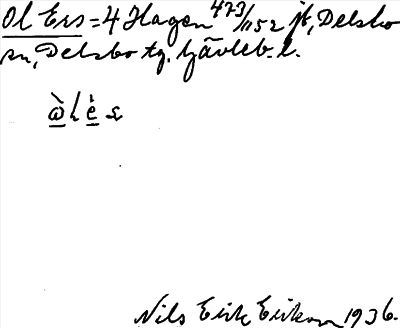 Ol Ers = 4 Hagen 473/1152 jt, Delsbo
sn, Delsbo tg. Gävleb. l.
Nils Erik Erikson 1936.